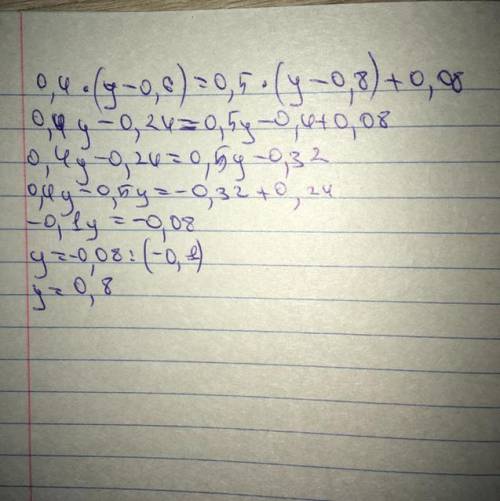 0,4 · (y-0,6) = 0,5 · (y-0,8) + 0,08
0,4y - 0,24 = 0,5y - 0,4 + 0,08
0,4y - 0,24 = 0,5y - 0,32
0,4y - 0,5y = -0,32 + 0,24
-0,1y = -0,08
y = -0,08 : (-0,1)
y = 0,8